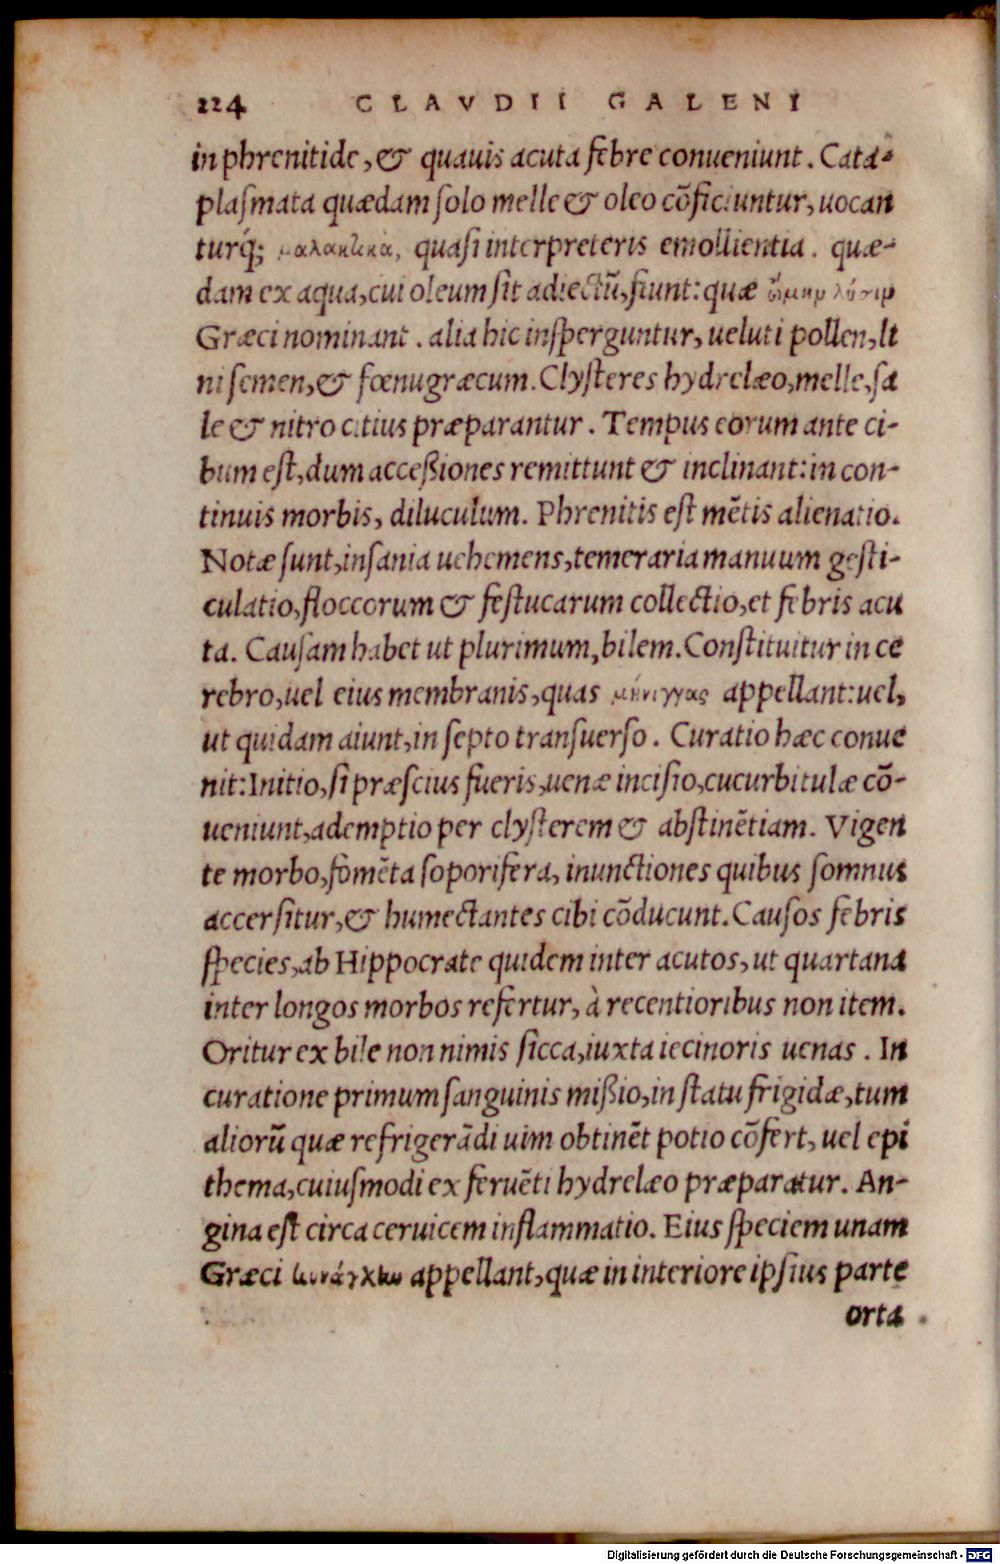 224 CLAVDII GALENI
in phrenitide, & quauis acuta febre conueniunt. Cata-
plasmata quædam solo melle & oleo cōficiuntur, uocan
turq́; μαλακτικὰ, quasi interpreteris emollientia. quæ-
dam ex aqua, cui oleum sit adiectū, fiunt: quæ
Græci nominant. alia hic insperguntur, ueluti pollen, li
ni semen, & fœnugræcum. Clysteres hydrelæo, melle, sa
le & nitro citius præparantur. Tempus eorum ante ci-
bum est, dum acceßiones remittunt & inclinant: in con-
tinuis morbis, diluculum. Phrenitis est mētis alienatio.
Notæ sunt, insania uehemens, temeraria manuum gesti-
culatio, floccorum & festucarum collectio, et febris acu
ta. Causam habet ut plurimum, bilem. Constituitur in ce
rebro, uel eius membranis, quas μήνιγγας appellant: uel,
ut quidam aiunt, in septo transuerso. Curatio hæc conue
nit: Initio, si præscius fueris, uenæ incisio, cucurbitulæ cō-
ueniunt, ademptio per clysterem & abstinētiam. Vigen
te morbo, fomēta soporifera, inunctiones quibus somnus
accersitur, & humectantes cibi cōducunt. Causos febris
species, ab Hippocrate quidem inter acutos, ut quartana
inter longos morbos refertur, à recentioribus non item.
Oritur ex bile non nimis sicca, iuxta iecinoris uenas. In
curatione primum sanguinis mißio, in statu frigidæ, tum
aliorū quæ refrigerādi uim obtinēt potio cōfert, uel epi
thema, cuiusmodi ex feruēti hydrelæo præparatur. An-
gina est circa ceruicem inflammatio. Eius speciem unam
Græci appellant, quæ in interiore ipsius parte
orta
Digitalisierung gefördert durch die Deutsche Forschungsgemeinschaft - DFG